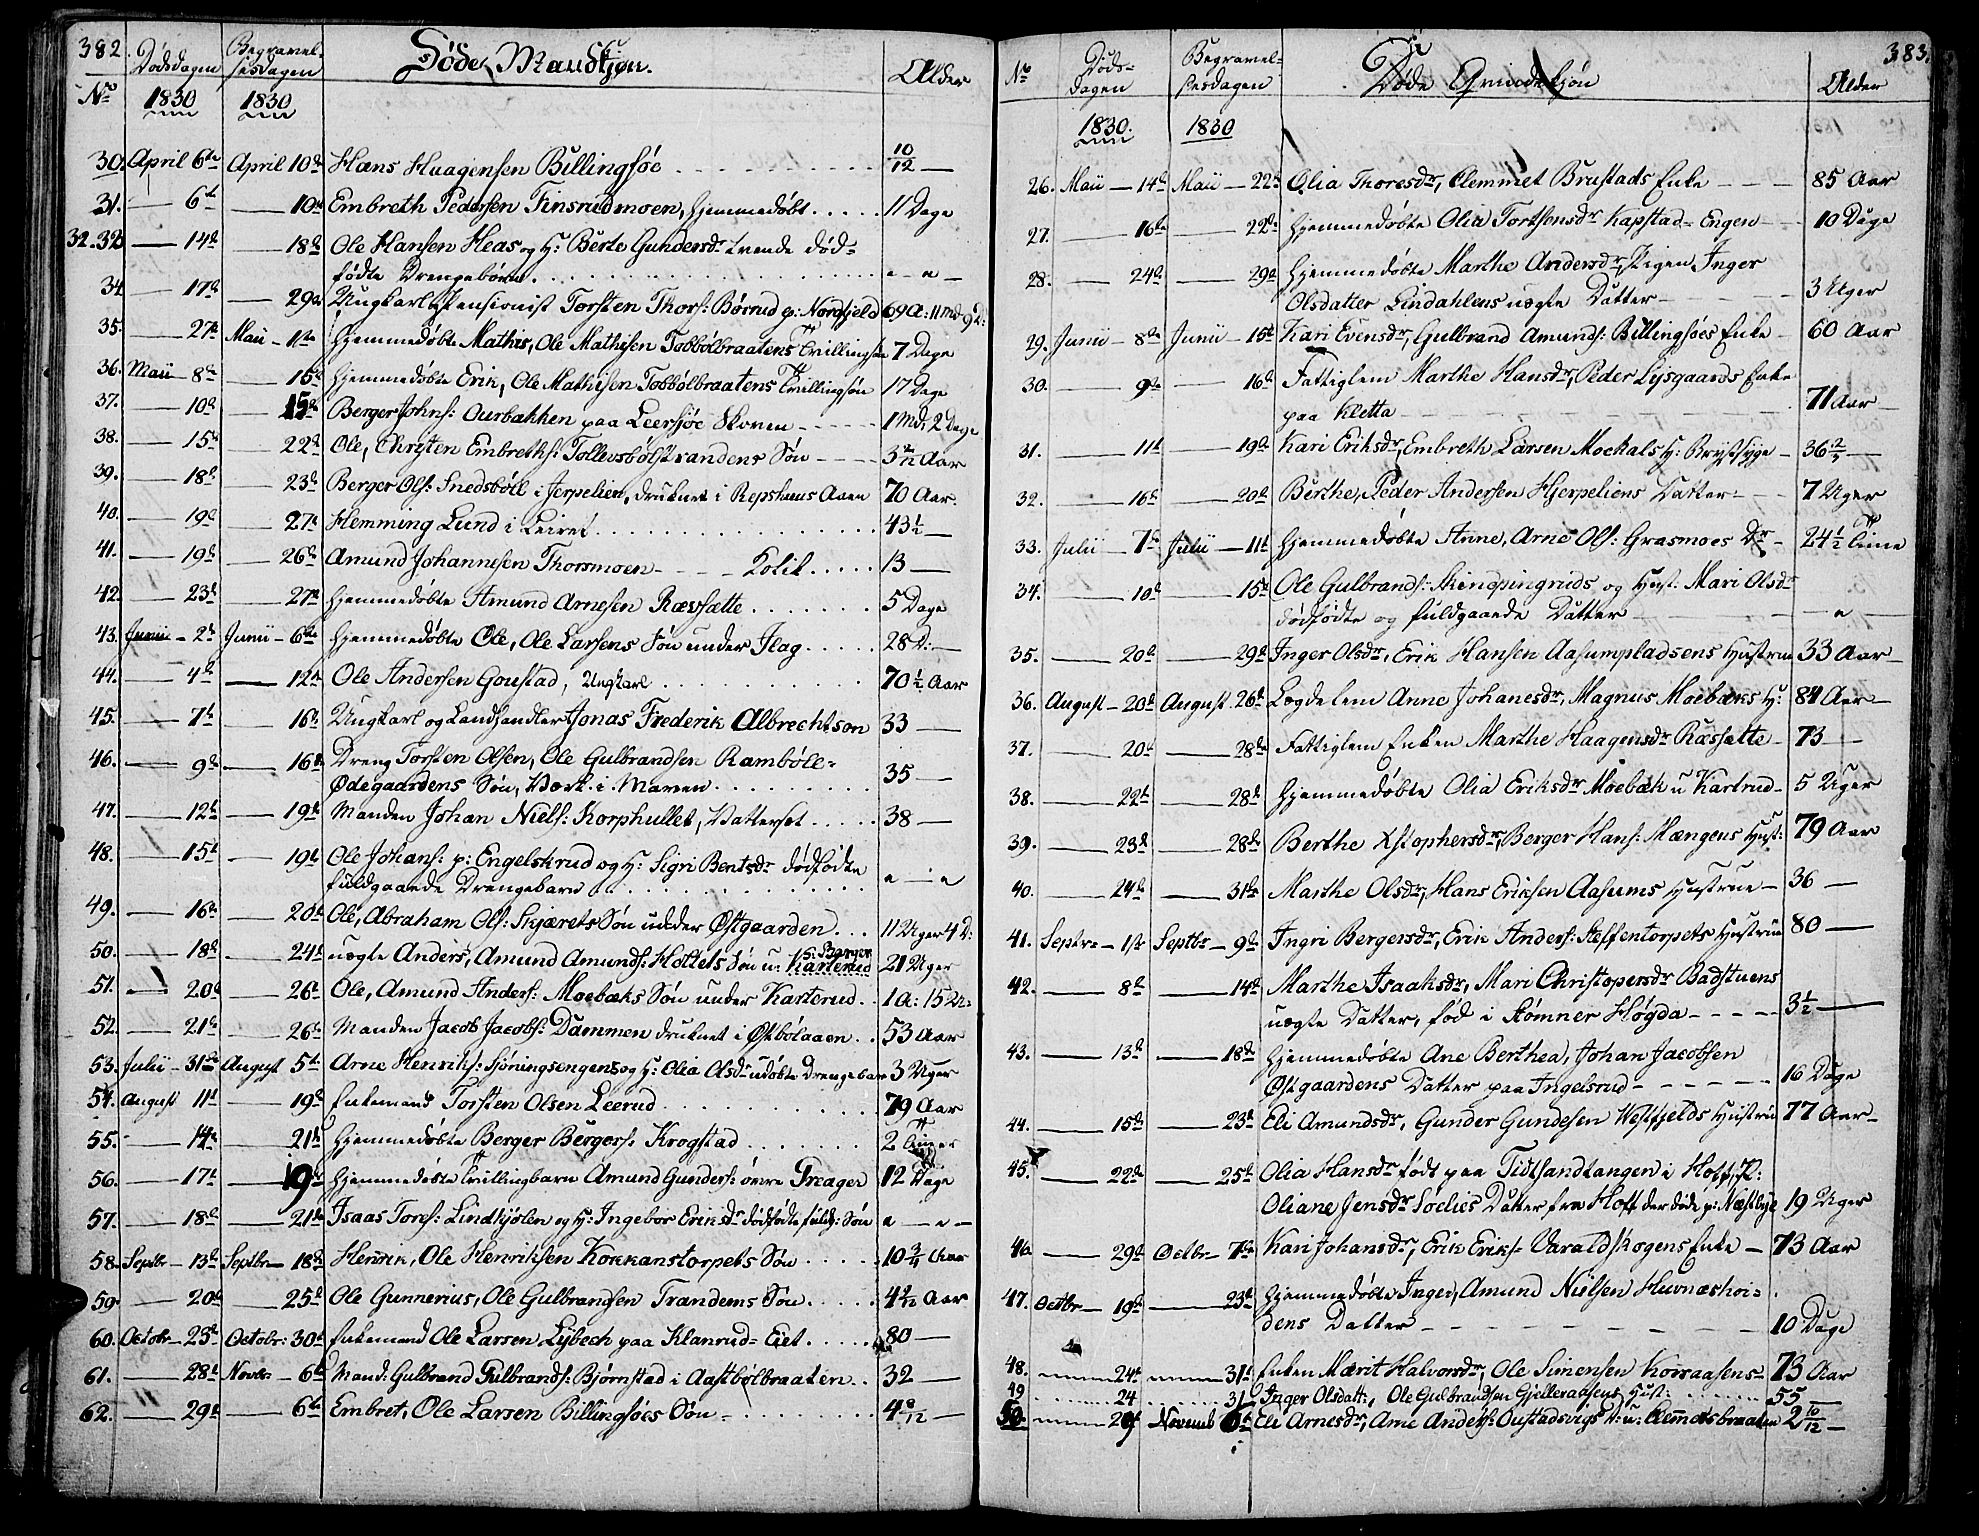 382.
Dødsdagen Begravelsesdagen Døde Mandkjøn. Alder
No 1830 1830
30. April 6te April 10de Hans Haagensen Billingsøe 10/12
31. — 6te — 10de Embreth Pedersen Finsrudmoen, hjemmedøbt 11 Dage
32-33 — 14de — 18de Ole Hansen Heas og H: Berte Gundersdr tvende død=
fødte Drengebørn
34 — 17de — 29de Ungkarl Pensionist Torsten Thors: Børrud p: Nordfjeld 69 A: 11 Md 9 D:
35. — 27de Maii — 1ste Hjemmedøbte Mathis, Ole Mathisen Tobbølbraatens Tvillingsøn 7 Dage
36. Maii — 8de — 15de Hjemmedøbte Erik, Ole Mathisen Tobbølbraatens Tvillingsøn 17 Dage
37. — 10de — 15de Berger Johns: Ourbakken paa Leersjøe Skoven 1 Md, 2 Dage
38. — 15de — 22de Ole, Chrysten Embreths: Tollevsbøls[t]randens Søn 3 2/12 Aar
39. — 18de — 23de Berger Ols: Snedsbøll i Jerpelien, druknet i Repshuus Aaen 70 Aar.
40. — 19de — 27de Hemming Lund i Leiret 43 1/2 —
41. — 19de — 26de Amund Johannesen Thorsmoen — Kolik 13 —
42. — 23de — 27de Hjemmedøbte Amund Arnesen Rævsætte 5 Dage
43. Junii — 2de Junii — 6te Hjemmedøbte Ole, Ole Larsens Søn under Flag 28 D: —
44. — 4de — 12te Ole Andersen Goustad, Ungkarl 70 1/2 Aar
45. — 7de — 16de Ungkarl og Landhandler Jonas Frederik Albrechtson 33 —
46. — 9de — 16de Dreng Torsten Olsen, Ole Gulbrandsen Rambøll=
Ødegaardens Søn, Værk i Maven 35 —
47. — 12te — 19de Manden Johan Niels: Korphullet, Vattersot 38 —
48. — 15de — 19de Ole Johans: p: Engelskrud og H: Sigri Bentsdr dødfødte
fuldgaaende Drengebarn
49. — 16de — 20de Ole, Abraham Ols: Skjærets Søn under Østgaarden 11 Uger 4 D:
50. — 18de — 24de uægte Anders, Amund Amunds: Hottets Søn u: Karterud 21 Uger
51. — 20de — 26de Ole, Amund Anders: Moebæks Søn under Karterud 1 A: 15 U:
52. — 21de — 26de Manden Jacob Jacobs: Dammen druknet i Østbølaaen 53 Aar
53. Julii — 31te August 5te Arne Henriks: Sjøningsengens og H: Olia Olsdr udøbte Drengebarn 3 Uger
54. August 11te — 19de Enkemand Torsten Olsen Leerud 79 Aar
55. — 14de — 21de Hjemmedøbte Berger Bergers: Krogstad 2 Timer
56. — 17de — 19de Hjemmedøbte Tvillingbarn Amund Gunders: øvre Greager 12 Dage
57. — 18de — 21de Isaas Tores: Lindkjølen og H: Ingebor Eriksdr dødfødte fuldg: Søn
58. Septbr — 13de Septbr — 18de Henrik, Ole Henriksen Kokkanstorpets Søn 10 3/4 Aar
59. — 20de — 25de Ole Gunnerius, Ole Gulbrandsen Trandems Søn Aar
60. Octobr — 23de Octobr: 30te Enkemand Ole Larsen Lybech paa Klanrud= Eiet 80 —
61. — 28de Novbr — 6te Mand: Gulbrand Gulbrands: Bjørnstad i Aastbølbraaten 32 —
62. — 29de — 6te Embret, Ole Larsen Billingsøes Søn 4 8/12 —
383.
No Døds-Dagen Begravelsesdagen Døde Qvindekjøn Alder
1830. 1830
26. Maii — 14de Maii — 22de Olia Thoresdr, Clemmet Brustads Enke 85 Aar
27. — 16de — 22de Hjemmedøbte Olia Tortsensdr Kapstad= Engen 10 Dage
28. — 24de — 29de Hjemmedøbte Marthe Andersdr, Pigen Inger
Olsdatter Lindahlens uægte Datter 3 Uger
29. Junii — 8de Junii — 15de Kari Evensdr, Gulbrand Amunds: Billingsøes Enke 60 Aar
30. — 9de — 16de Fattiglem Marthe Hansdr, Peder Lysgaards Enke
paa Kletta 71 Aar
31. — 11te — 19de Kari Eriksdr, Embreth Larsen Mockals H: Brystsyge 36 —
32. — 16de — 20de Berthe, Peder Andersen Hjerpeliens Datter 7 Uger
33. Julii — 7de Julii — 11te Hjemmedøbte Anne, Arne Ols: Grasmoes Dr 24 1/2 Time
34. — 10de — 15de Ole Gulbrands: Skinopingruds og Hust: Mari Olsdr
dødfødte og fuldgaaende Datter
35. — 20de — 29de Inger Olsdr, Erik Hansen Aasumpladsens Hustrue 33 Aar
36. August — 20de August 26de Lægdelem Anne Johanesdr, Magnus Moebæks H: 84 Aar
37. — 20de — 28de Fattiglem Enken Marthe Haagensdr Ræfsætte 73 —
38. — 22de — 28de Hjemmedøbte Olia Eriksdr Moebæk u Kartrud 5 Uger
39. — 23de — 28de Berthe Xstophersdr, Berger Hans: Mængens Hust: 79 Aar
40. — 24de — 31te Marthe Olsdr, Hans Eriksen Aasums Hustrue 36 —
41. Septr — 1ste Septbr — 9de Ingri Bergersdr, Erik Anders: Steffentorpets Hustrue 80 —
42. — 8de — 14de Marthe Isaaksdr, Mari Christopersdr Badstuens
uægte Datter, fød i Rømner Høgda 3 1/2 —
43. — 13de — 18de Hjemmedøbte Ane Berthea, Johan Jacobsen
Østgaardens Datter paa Ingelsrud 16 Dage
44. — 15de — 23de Eli Amundsdr, Gunder Gundesen Westfjelds Hustrue 77 Aar
45. — 22de — 25de Olia Hansdr født paa Tidtsandtangen i Hoff, P:
Oliane Jensdr Sølies Datter fra Hoff der døde p: Næstbye 19 Uger
46. — 29de Octbr — 7de Kari Johansdr, Erik Eriks: Varaldskogens Enke 73 Aar
47. Octbr — 19de — 23de Hjemmedøbte Inger, Amund Nielsen Huvnæshoi=
dens Datter 10 Dage
48. — 24de — 31te Enken Marit Halvorsdr, Ole Simensen Korsaasens 73 Aar
49 — 24 — 31 Inger Olsdatt:, Ole Gulbrandsen Gjelleraasens Hust: 55 —
50. — 29 Novemb 6te Eli Arnesdr, Arne Anders: Oustadsvigs D: u: Clemetsbraaten 2 10/12 —